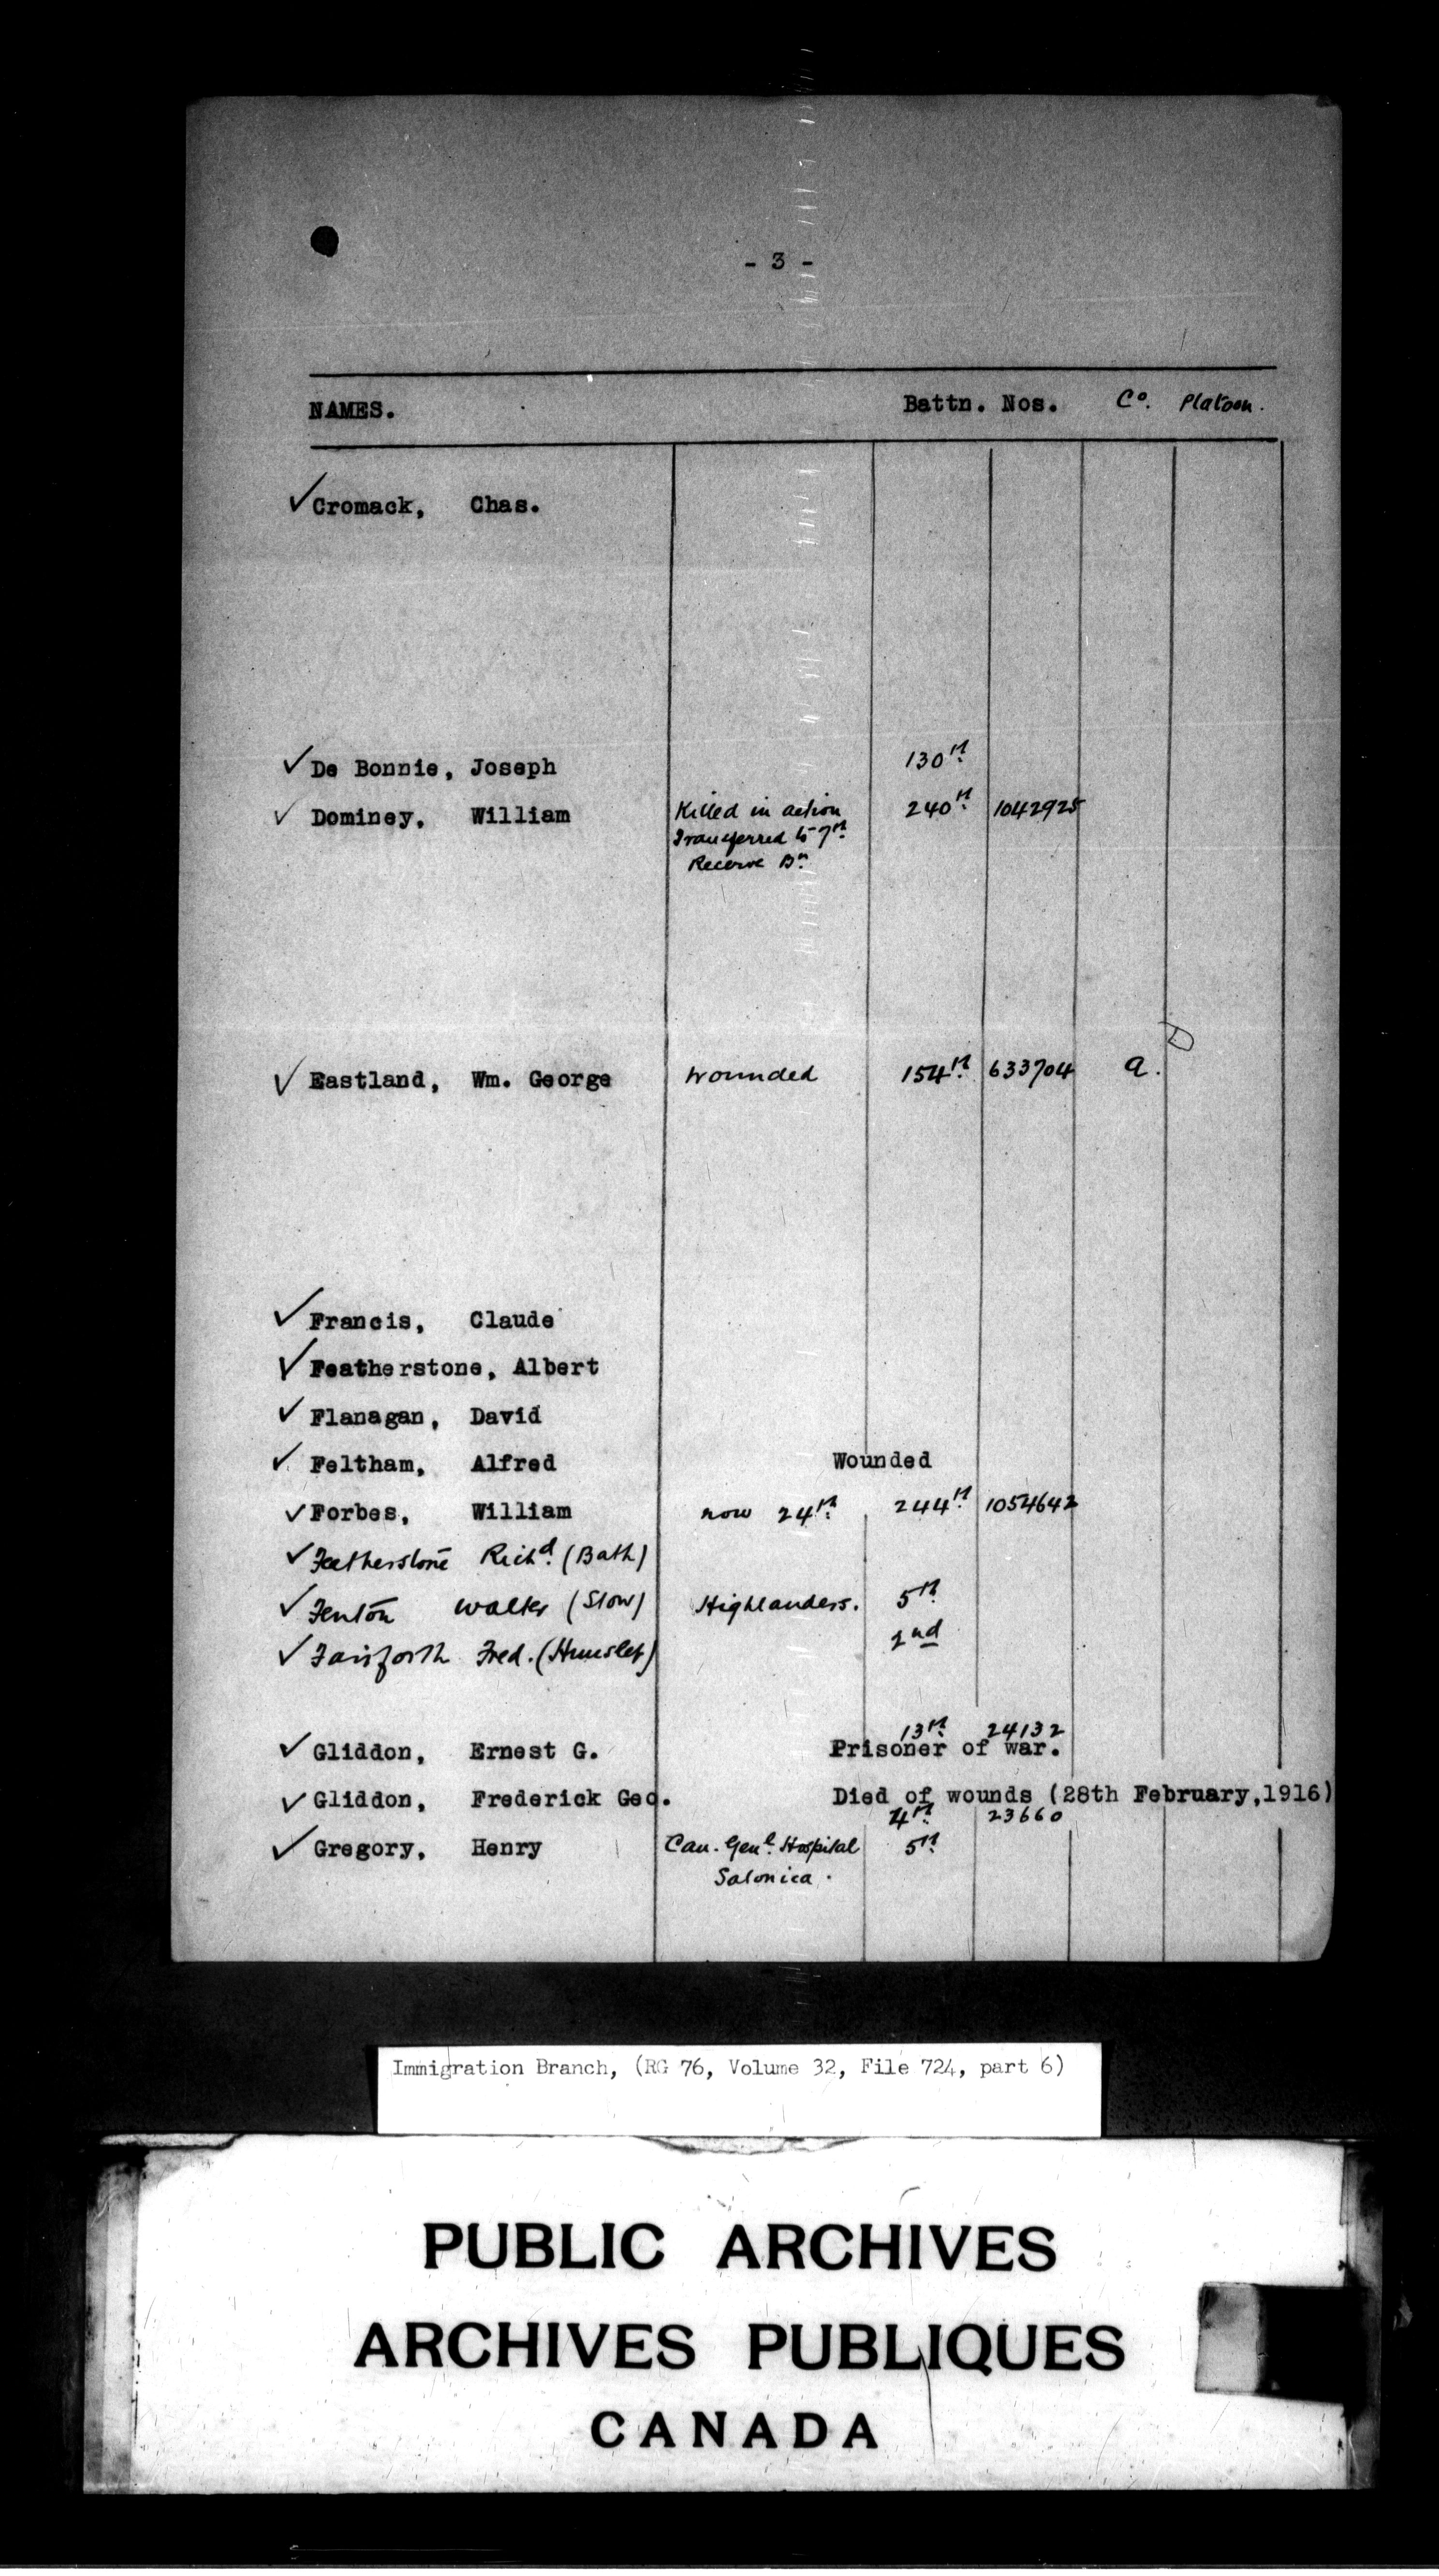 - 3 -
NAMES. Battn. Nos. Co. Platoon.
✓ Cromack, Chas.
✓ De Bonnie, Joseph 130th
✓ Dominey, William Killed in action 240th 1042925
Transferred to 7th
Reserve Bn
D
✓ Eastland, Wm. George wounded 154th 633704 a.
✓ Francis, Claude
✓ Featherstone, Albert
✓ Flanagan, David
✓ Feltham, Alfred Wounded
✓ Forbes, William now 24th 244th 1054642
✓ Featherstone Richd. (Bath)
✓ Fenton Walter (Slow) Highlanders. 5th
✓ Fairforth Fred. (Hunslet) 2nd
13th 24132
✓ Gliddon, Ernest G. Prisoner of war.
✓ Gliddon, Frederick Geo. Died of wounds (28th February,1916)
4th 23660
✓ Gregory, Henry Can. Genl. Hospital 5th
Salonica.
Immigration Branch, (RG 76, Volume 32, File 724, part 6)
PUBLIC ARCHIVES
ARCHIVES PUBLIQUES
CANADA